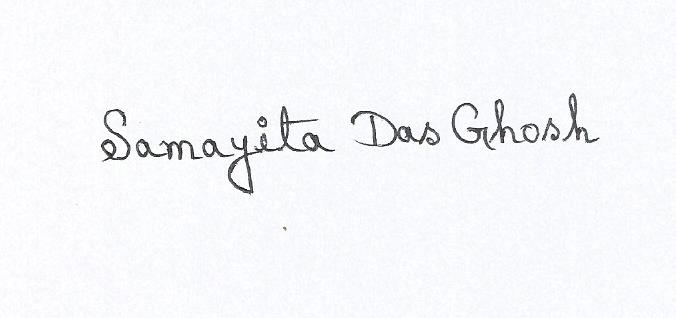 Samayita Das Ghosh